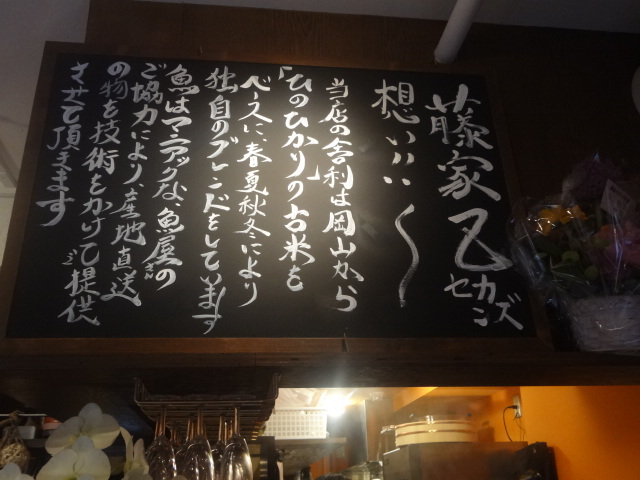 藤家乙セカンズ
想い…〜
当店の舎利は岡山から
「ひのひかりの古米を
ベースに、春夏秋冬により
独自のブレンドをしています
魚はマニアックな、魚屋さんの
ご協力により、産地直送
の物を技術をかけてご提供
させて頂きます